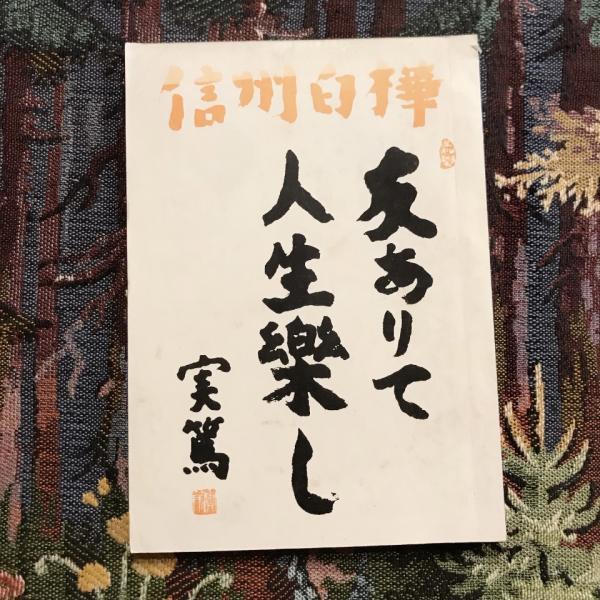 信州白樺
友ありて
人生樂し
実篤